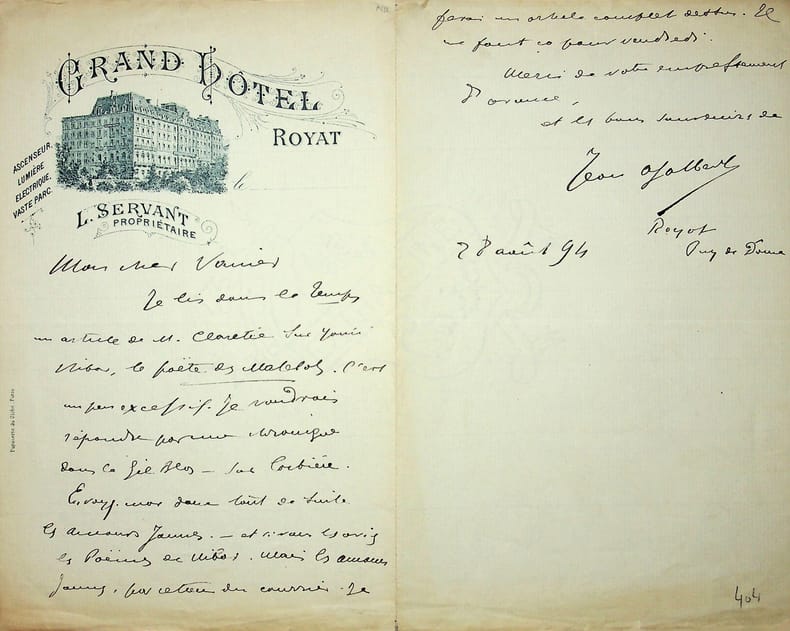 GRAND HOTEL
ROYAT
ASCENSEUR,
LUMIÈRE
ELECTRIQUE,
VASTE PARC.
le
L. SERVANT
PROPRIÉTAIRE
Mon cher Vanier
Je lis dans le Temps
un article de M. Claretie sur Yann
Nibor, le poète des Matelots. C'est
un peu excessif. Je voudrais
répondre par une chronique
dans le Gil Blas — sur Corbière.
Envoyez-moi donc tout de suite
les amours Jaunes. — et si vous les avez
les Poèmes de Nibor. Mais les amours
Jaunes, par retour du courrier. Je
ferai un article complet dessus. Il
me faut ça pour vendredi.
Merci de votre empressement
d'avance,
et les bons souvenirs de
Jean Ajalbert
Royat
Puy de Dome
28 août 94
404